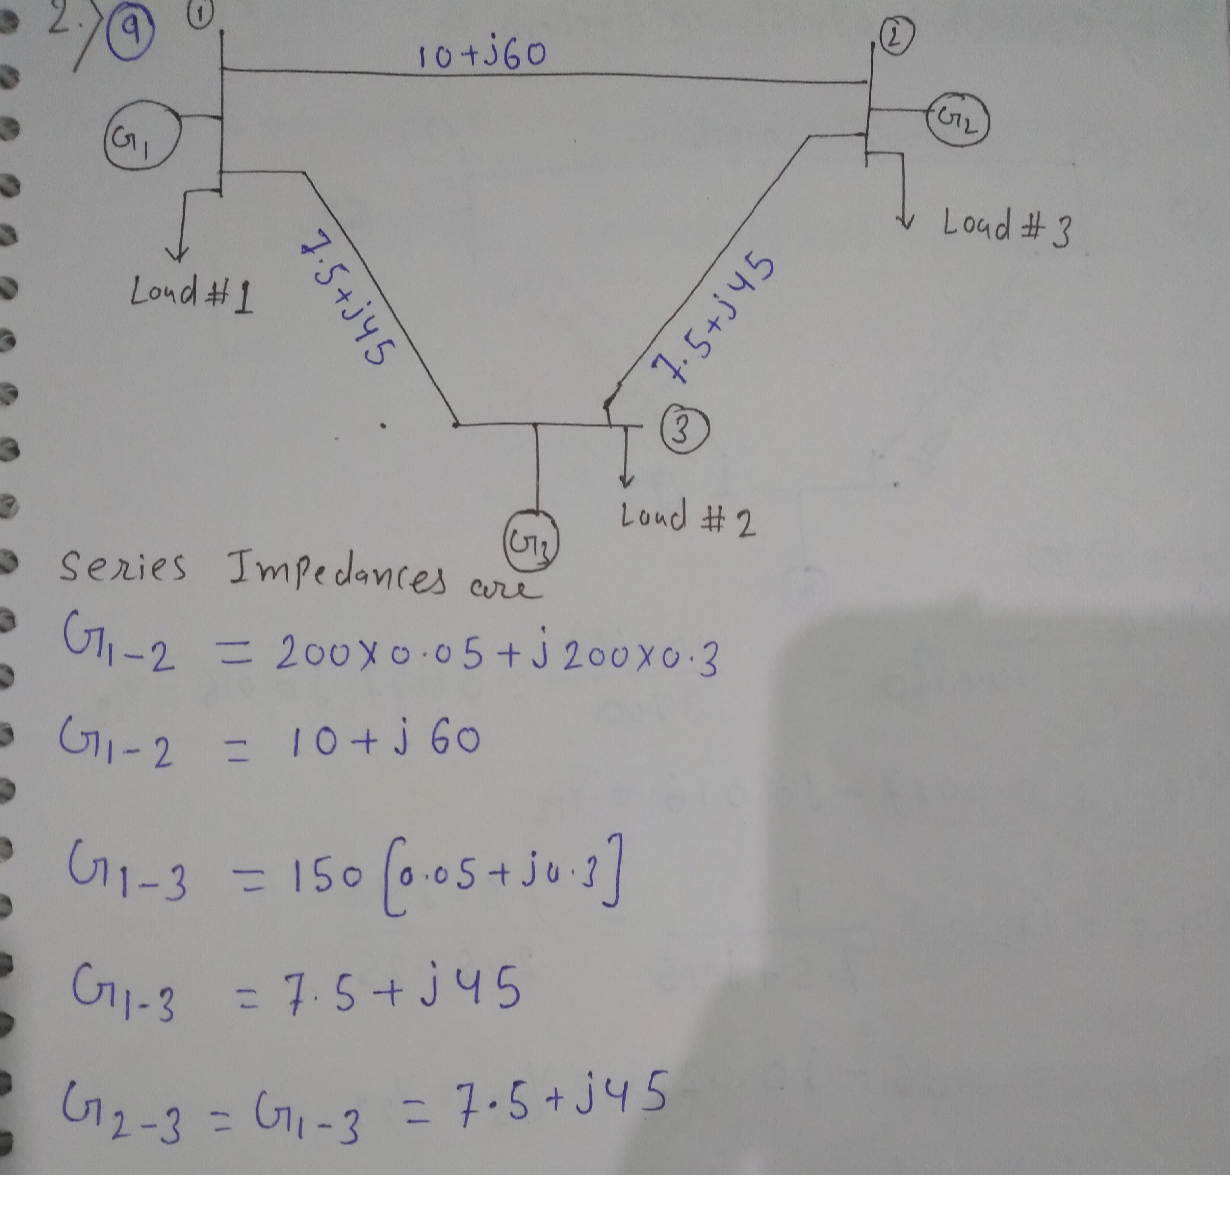 2.) (a)
①
②
10+j60
G1
G2
Load #3
Load #1
7.5+j45
7.5+j45
③
Load #2
G3
Series Impedances are
G1-2 = 200×0.05+j200×0.3
G1-2 = 10+j60
G1-3 = 150[0.05+j0.3]
G1-3 = 7.5+j45
G2-3 = G1-3 = 7.5+j45